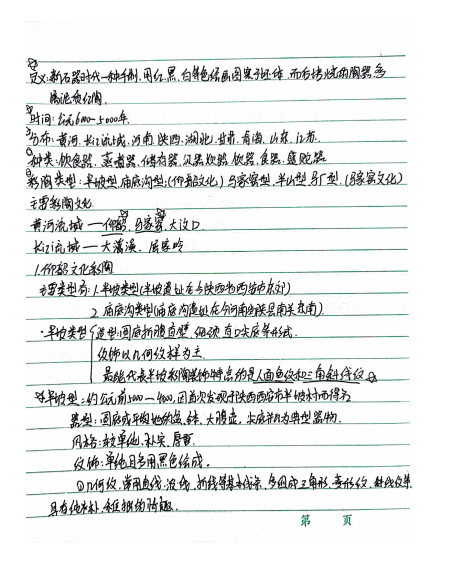 ①定义:新石器时代一种手制、用红、黑、白等色绘画图案于坯体,而后烧成的陶器,多
属泥质红陶。
②时间:公元6000-5000年。
③分布:黄河、长江流域,河南 陕西、湖北、甘肃、青海、山东、江苏.
④种类:饮食器、蒸煮器、储存器、汲器、炊器、饮器、食器、盛贮器
⑤彩陶类型:半坡型 庙底沟型:(仰韶文化) 马家窑型、半山型 马厂型、(马家窑文化)
主要彩陶文化
黄河流域 — 仰韶、马家窑、大汶口
长江流域 — 大溪、屈家岭
1.仰韶文化彩陶
主要类型有:1.半坡类型(半坡遗址在今陕西省西安市东郊)
2.庙底沟类型(庙底沟遗址在今河南省陕县南关东南)
·半坡类型 造型:圆底折腹直壁、细颈、直口尖底等形式.
纹饰以几何纹样为主
最能代表半坡彩陶装饰特点的是人面鱼纹和三角斜线纹
半坡型:约公元前5000-4000,因首次发现于陕西西安市半坡村而得名
器型:圆底或平底的盆、钵、大腹壶、尖底瓶为典型器物.
风格:较单纯、朴实、厚重
纹饰:单纯且多用黑色绘成。
①几何纹,常用直线、波线、折线等基本线条,多组成三角形、菱形纹、斜线纹等
具有纯朴、稚拙的情趣.
第 页